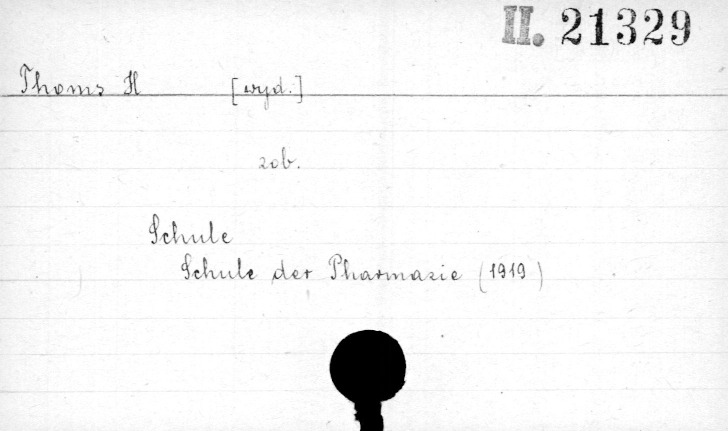 II. 21329
Thoms H [wyd.]
zob.
Schule
Schule der Pharmazie (1919)